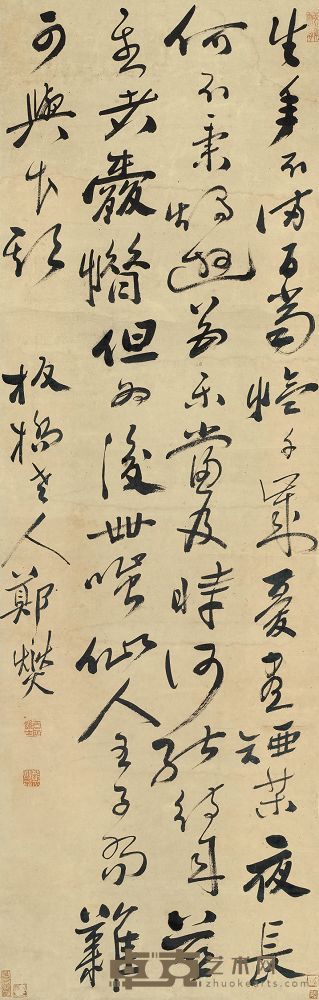 生年不滿百常懷千歲憂晝短苦夜長
何不秉燭遊為樂當及時何能待來茲
愚者愛惜但為後世嗤仙人王子喬難
可與等期
板橋老人鄭燮
卓克艺术网
www.zhuokearts.com